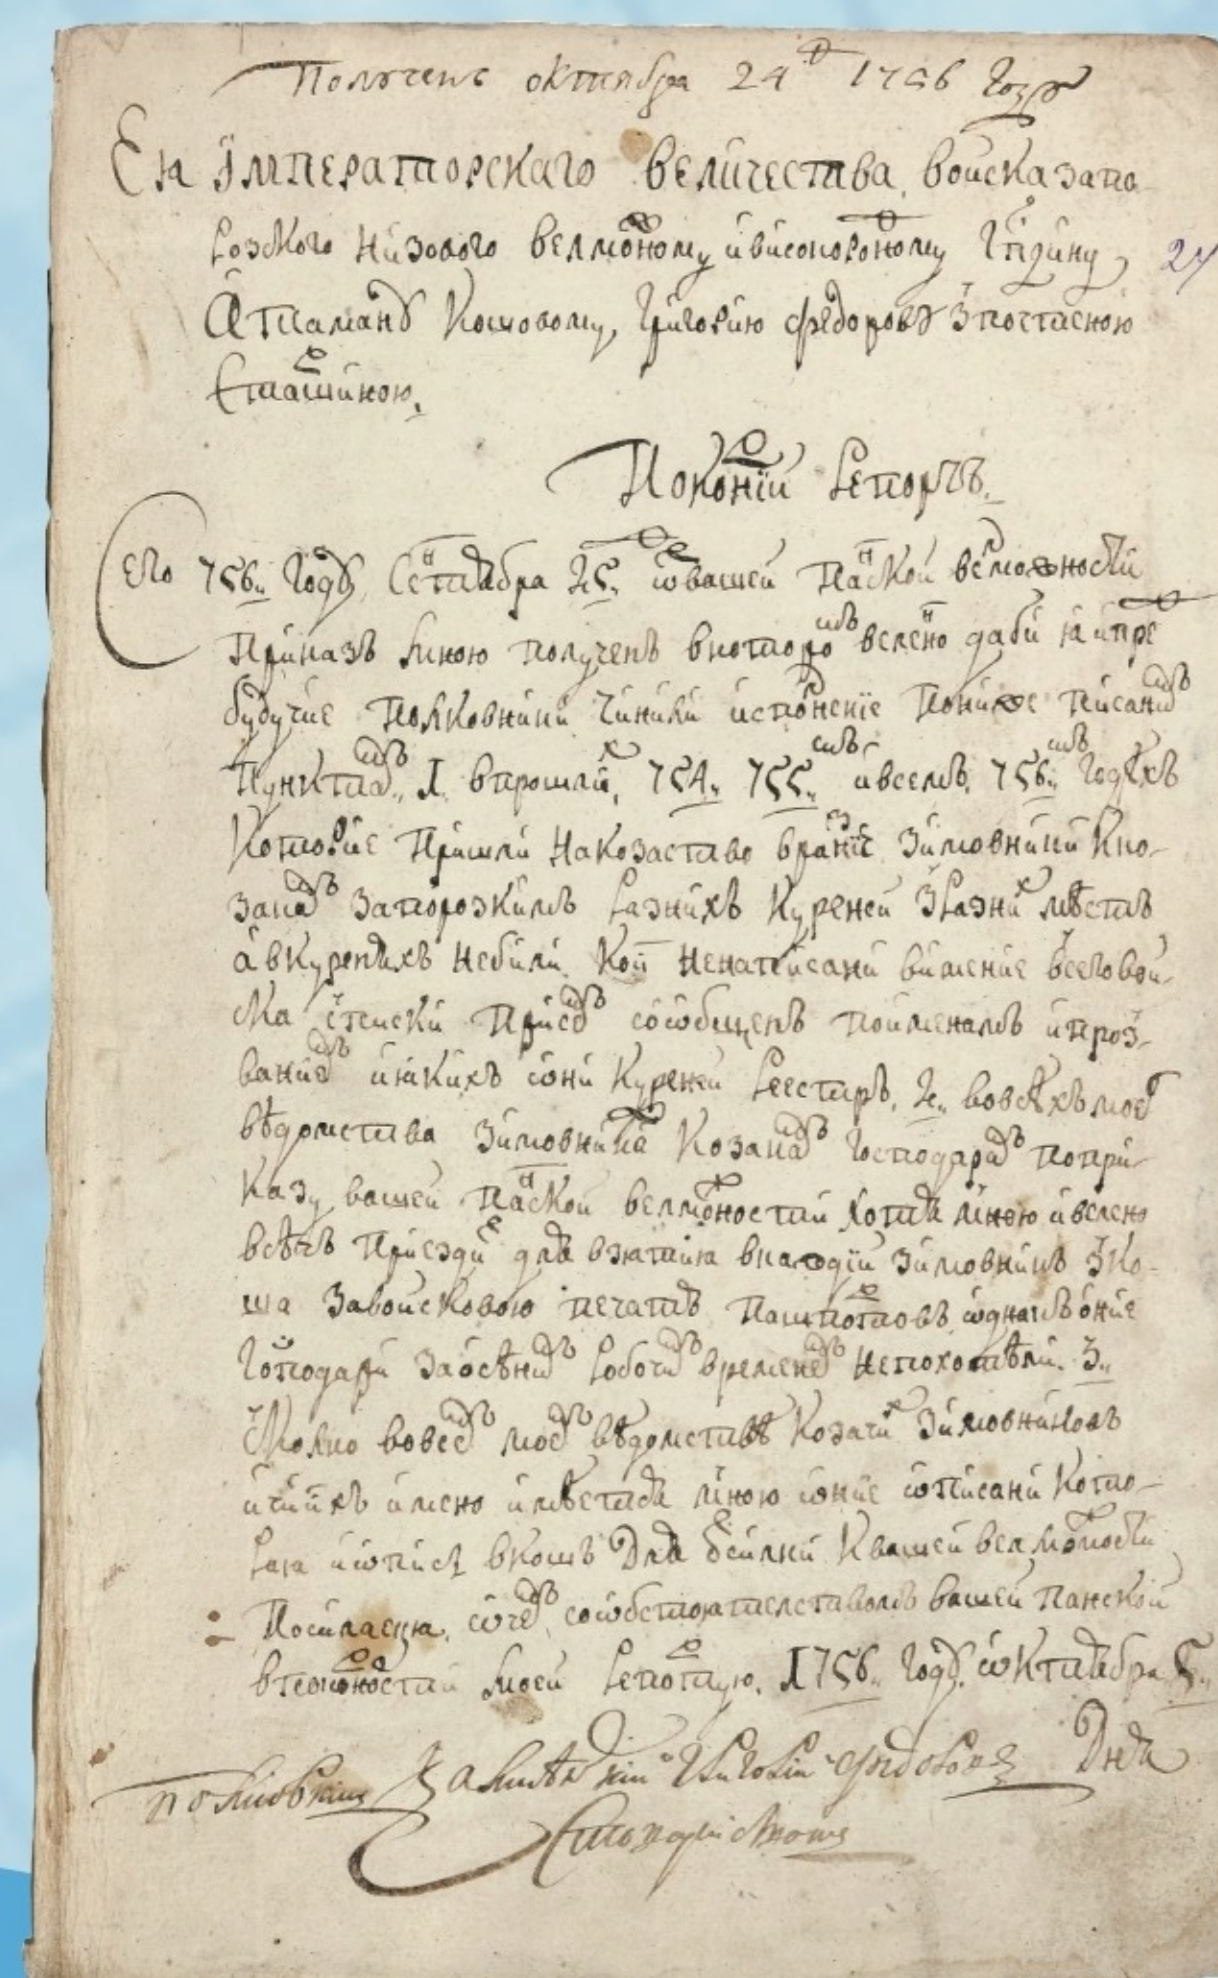 Полученъ октября 24 д 1756 Году
Ея Їмператорскаго величества, воиска запо-
розкого низового велможному и високородному Гпдину
24
Атаману Кошовому, Григорию Федорову Зпочтеною
Старшиною.
Покорній Репортъ.
Сего 756 Году, Сентября 25 ѿ вашей панской велможности
приказъ мною полученъ в которомъ велено даби я и пре
будучие полковники чинили исполнение пониже писанимъ
пунктамъ, 1. в прошлих, 754, 755мъ и всемъ, 756мъ годѣхъ
которие пришли на козаство в разніе зимовники к ко-
закамъ запорозкимъ разнихъ куреней з разних мѣстъ
а в куреняхъ небили, кои ненаписани в имение всего вой-
ска списки при семъ сообщенъ поименамъ и проз-
ваниямъ и якихъ они куреней реестръ, 2. во всѣхъ моего
вѣдомства зимовниках козакамъ господарямъ по при-
казу вашей панской велможности хотя мною и велено
в сѣчъ приездит для взятия в каждїй зимовникъ з Ко-
ша за войсковою печатю пашпортовъ, однакъ оние
господари за осѣннимъ робочимъ временемъ непохотѣли. 3.
Сколко во всемъ моемъ вѣдомствѣ козачих зимовниковъ
и чиихъ имено и мѣстця мною оние описани кото-
рая и опись в кошъ для отсилки к вашей велможности
посилается, о чемъ, со обстоятелством вашей панской
велможности мой репортую. 1756 году. октября 5
Дня
полковникъ Григорій Федоровъ